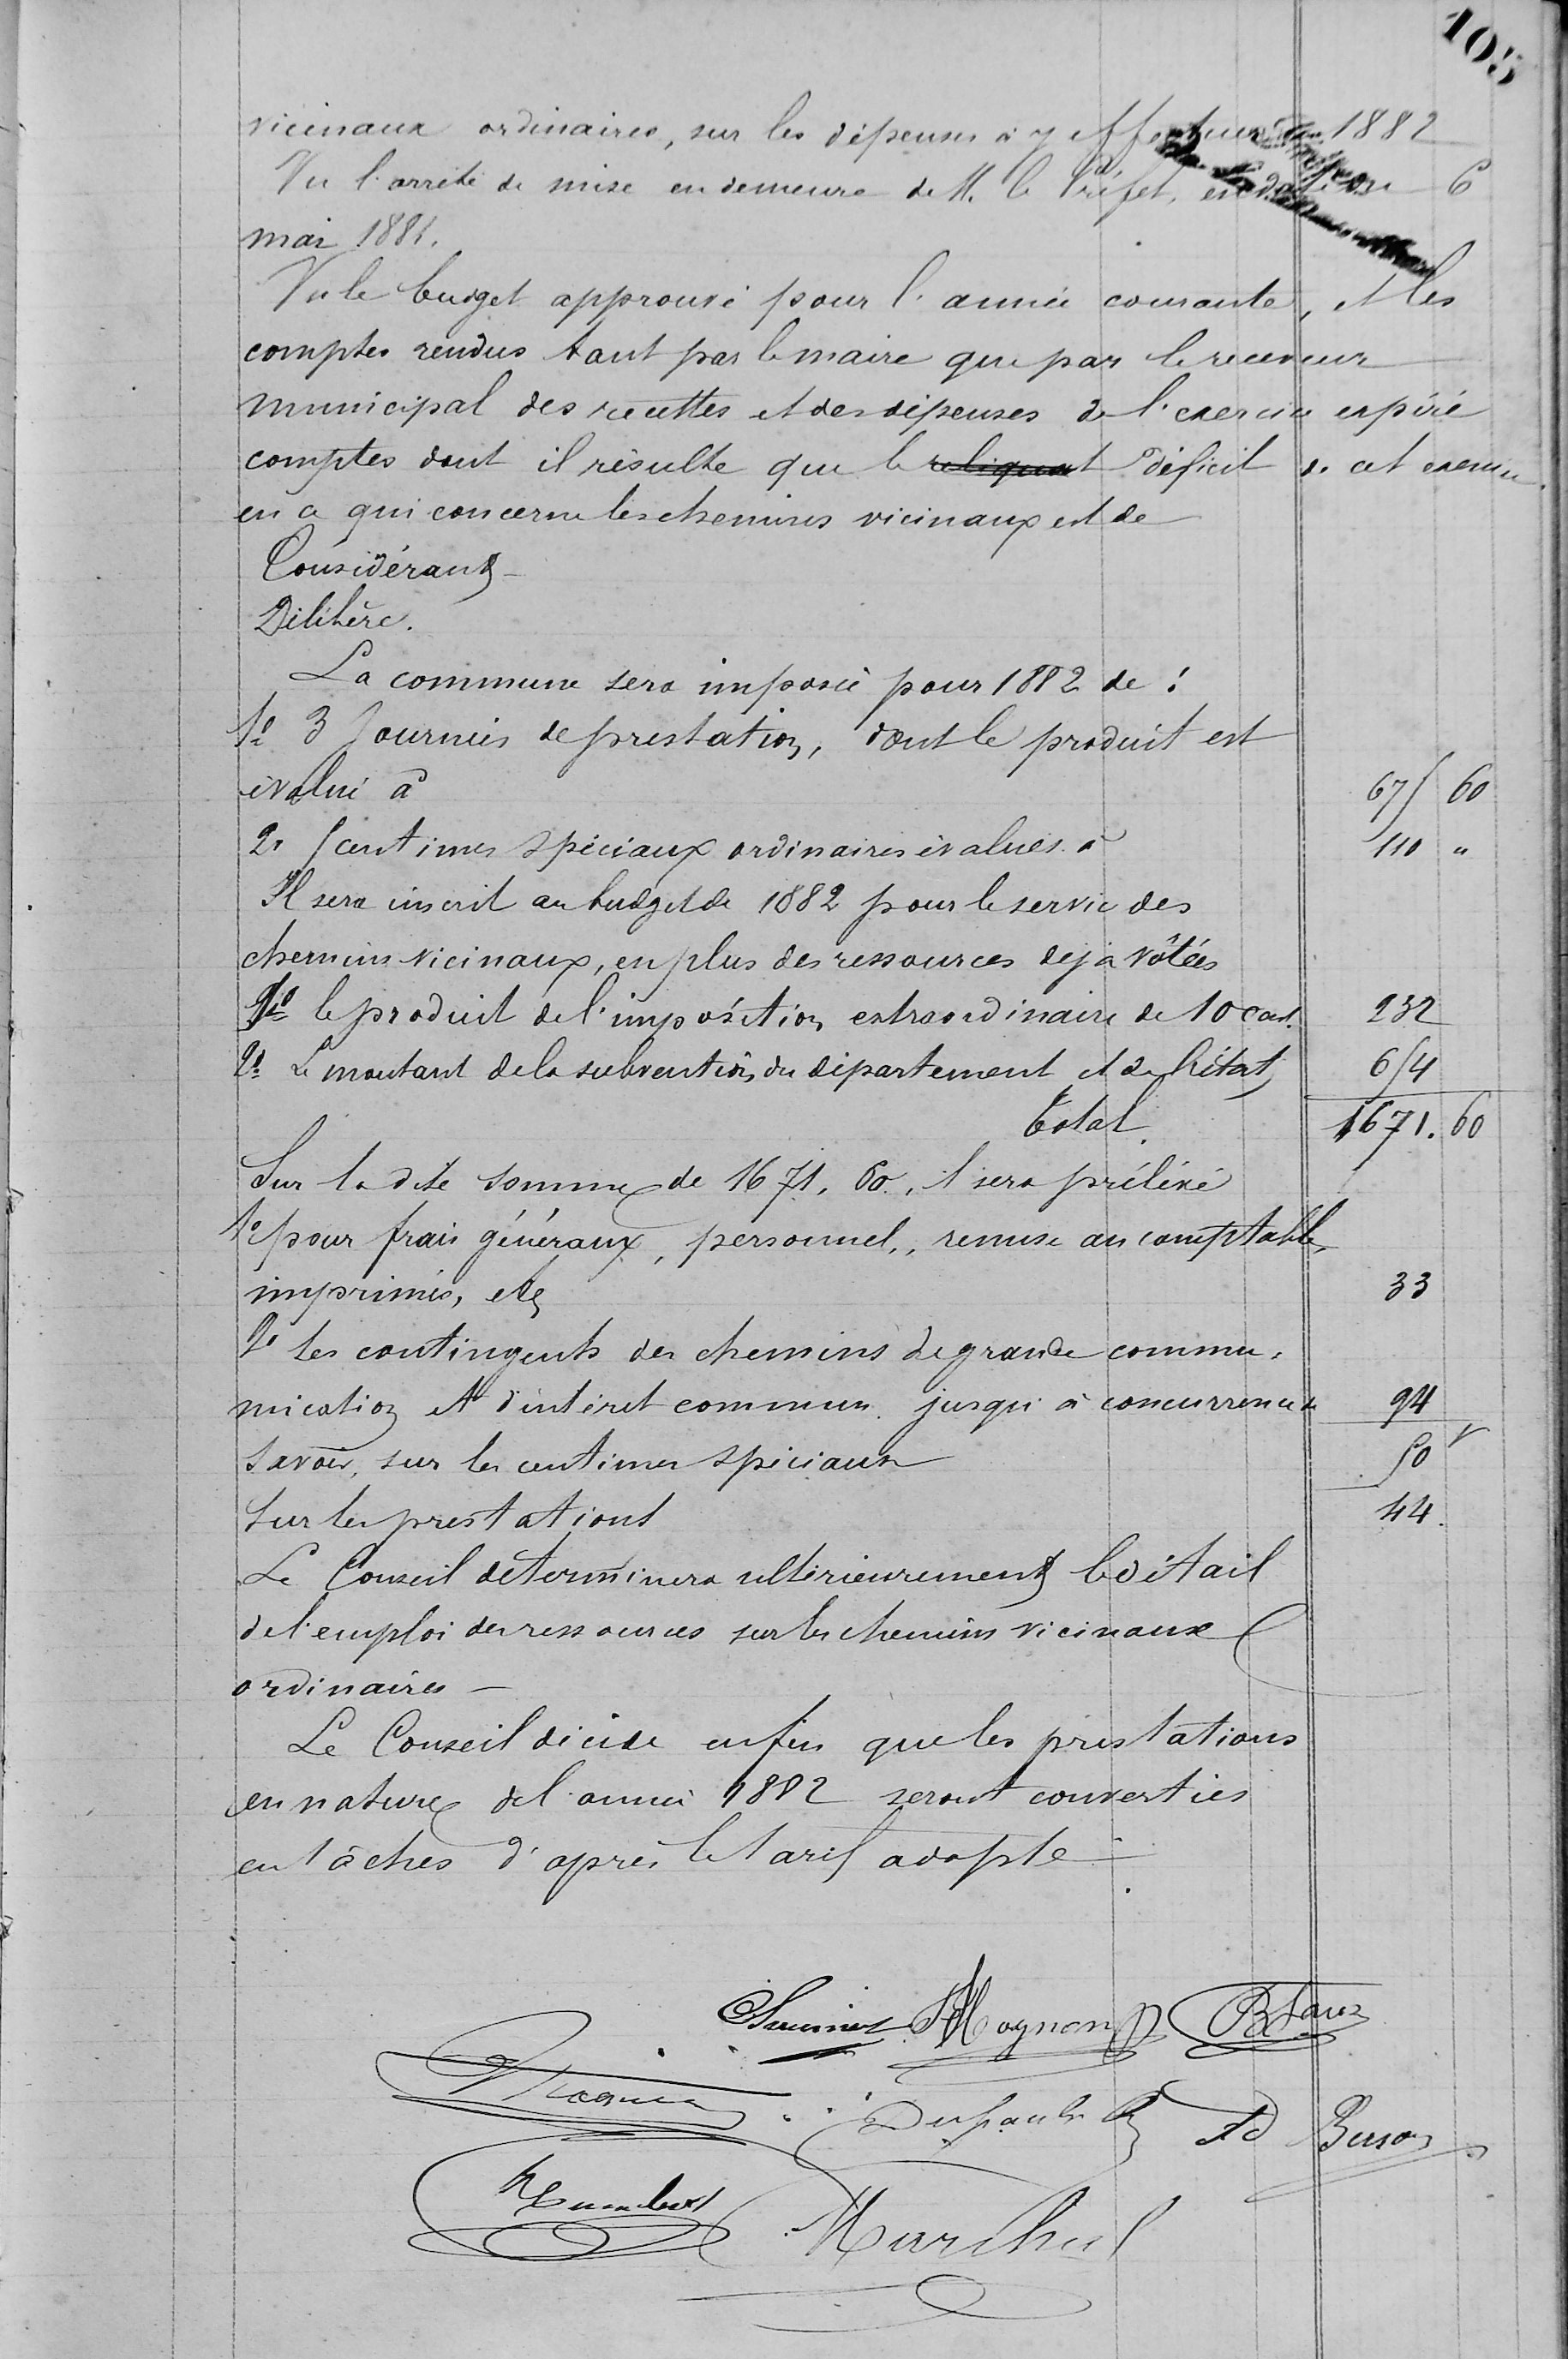 105
vicinaux ordinaires, sur les dépenses à y effectuer en 1882
Vu l'arrêté de mise en demeure de M. le Préfet, en date du 6
mai 1881.
Vu le budget approuvé pour l'année courante, et les
comptes rendus tant par le maire que par le receveur
municipal des recettes et des dépenses de l'exercice expiré
comptes dont il résulte que le reliquat déficit d. cet exercice
en ce qui concerne les chemins vicinaux est de
Considérant
Délibère.
La commune sera imposée pour 1882 de :
1º 3 Journées de prestation, dont le produit est
évalué à 675 60
2º 5 centimes spéciaux ordinaires évalués à 110 "
Il sera inscrit au budget de 1882 pour le service des
chemins vicinaux, en plus des ressources déjà vôtées
1º le produit de l'imposition extraordinaire de 10 cent. 232
2º Le montant de la subvention du département et de l'état 654
Total. 1671. 60
Sur la dite somme de 1671. 60, il sera prélévé
1º pour frais généraux, personnel, remise au comptable,
imprimés, etc 33
2º les contingents des chemins de grande commu-
nication et d'intérêt commun jusqu'à concurrence de 94
savoir, sur les centimes spéciaux 50
sur les prestations 44.
Le Conseil déterminera ultérieurement le détail
de l'emploi des ressources sur les chemins vicinaux
ordinaires —
Le Conseil décide enfin que les prestations
en nature de l'année 1882 seront converties
en tâches d'après le tarif adopté
Magnan Blanc
Berson
Humbert Maréchal